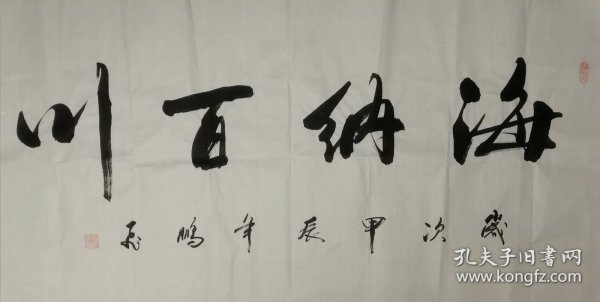 海纳百川
歲次甲辰年鹏飞
孔夫子旧书网
www.kongfz.com